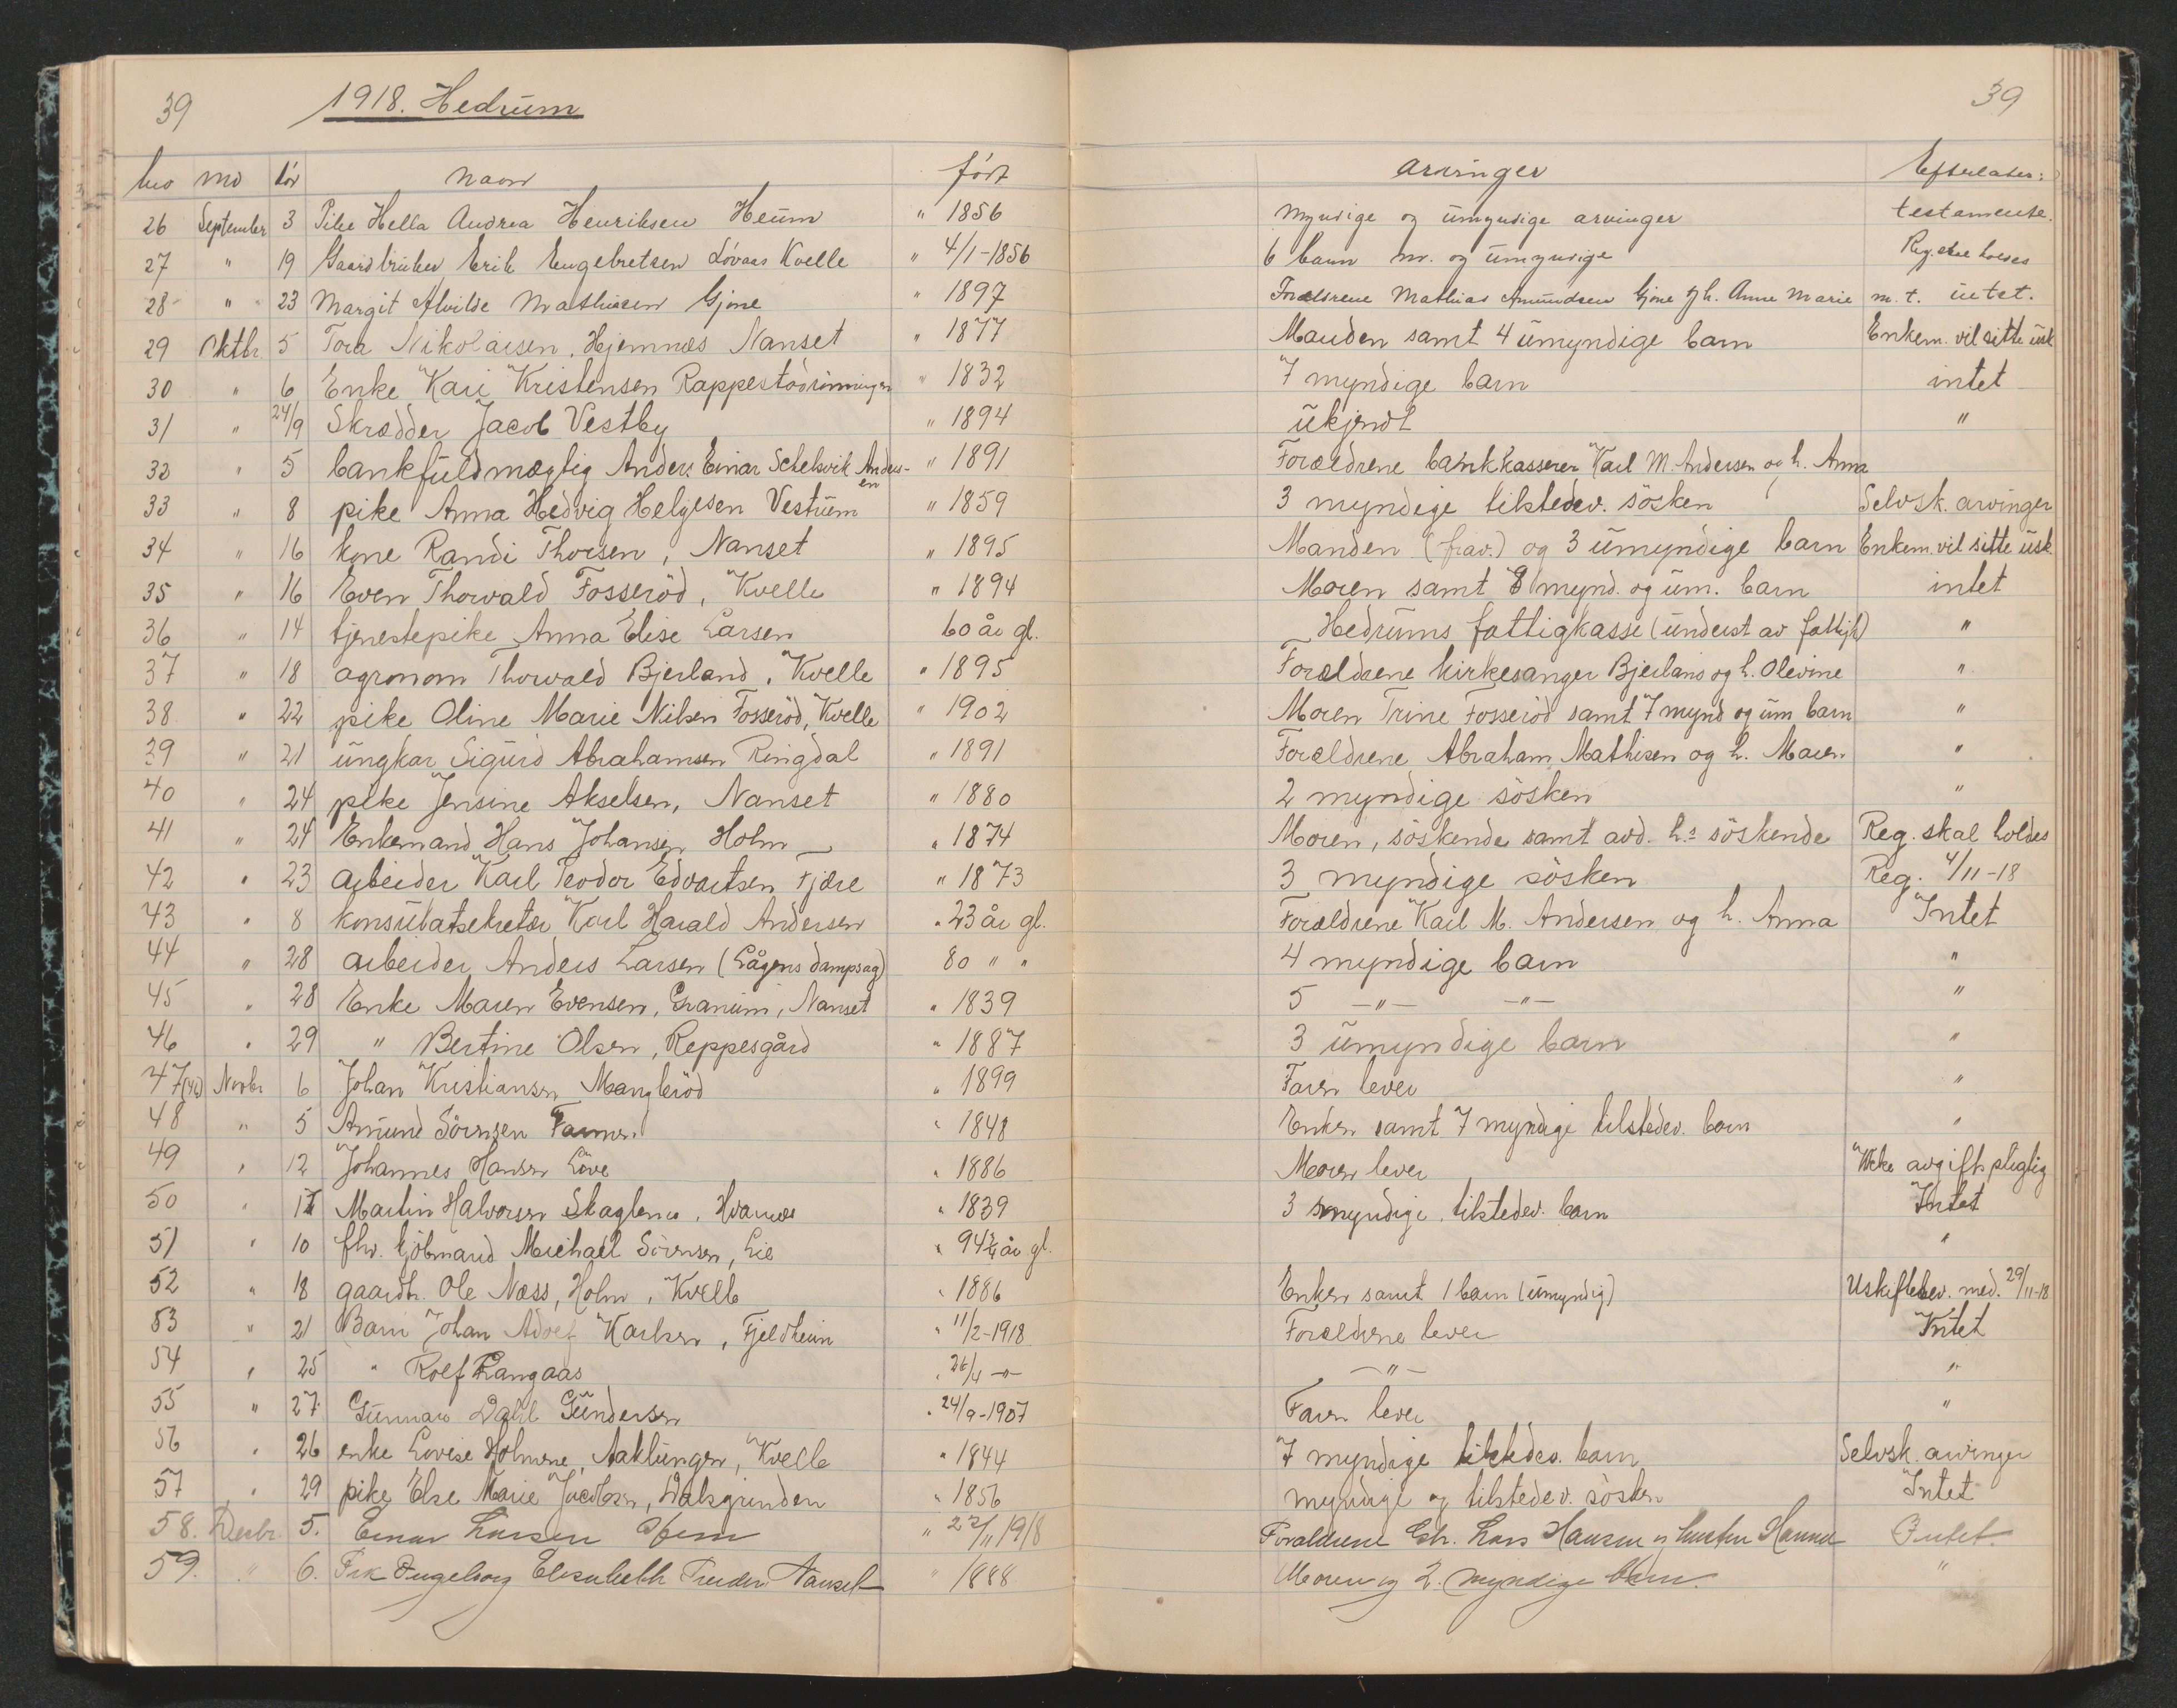 39 1918. Hedrum 39
No md dór navn fórt arvinger Efterlater:
26 September 3 Pike Hella Andrea Henriksen Heum " 1856 myndige og umyndige arvinger testamente.
27 " 19 Gaardbruker Erik Engebretsen Lóvaas Kvelle " 4/1-1856 6 barn m. og umyndige Reg. skal holdes
28 " 23 Margit Alvilde Mathisen Gjone " 1897 Forældrene Mathias Amundsen Gjone og h. Anne Marie m. t. intet.
29 Oktbr. 5 Tora Nikolaisen, Hjemnes Nanset " 1877 Manden samt 4 umyndige barn Enkem. vil sitte usk.
30 " 6 Enke Kari Kristensen Rappestadrønningen " 1832 7 myndige barn intet
31 " 24/9 Skrædder Jacob Vestby " 1894 ukjendt "
32 " 5 bankfuldmægtig Anders Einar Schelsvik Andersen " 1891 Forældrene bankkasserer Karl M. Andersen og h. Anna
33 " 8 pike Anna Hedvig Helgesen Vestum " 1859 3 myndige tilstedev. søsken Selvsk. arvinger
34 " 16 kone Randi Thorsen, Nanset " 1895 Manden (frav.) og 3 umyndige barn Enkem. vil sitte usk.
35 " 16 Even Thorvald Fosserød, Kvelle " 1894 Moren samt 8 mynd. og um. barn intet
36 " 14 tjenestepike Anna Elise Larsen 60 år gl. Hedrums fattigkasse (underst av fattigk) "
37 " 18 agronom Thorvald Bjerland, Kvelle " 1895 Forældrene kirkesanger Bjerland og h. Olevine "
38 " 22 pike Oline Marie Nilsen Fosserød, Kvelle " 1902 Moren Trine Fosserød samt 7 mynd og um barn "
39 " 21 ungkar Sigurd Abrahamsen Ringdal " 1891 Forældrene Abraham Mathisen og h. Maren "
40 " 24 pike Jensine Akselsen, Nanset " 1880 2 myndige søsken "
41 " 24 Enkemand Hans Johansen Holm " 1874 Moren, søskende samt avd. h.s søskende Reg. skal holdes
42 " 23 arbeider Karl Teodor Edvartsen Fjære " 1873 3 myndige søsken Reg. 4/11-18
43 " 8 konsulatsekretær Karl Harald Andersen " 23 år gl. Forældrene Karl M. Andersen og h. Anna Intet
44 " 28 arbeider Anders Larsen (Lågens dampsag) 80 " " 4 myndige barn "
45 " 28 Enke Maren Evensen, Granum, Nanset " 1839 5 -"- -"- "
46 " 29 " Bertine Olsen, Reppesgård " 1887 3 umyndige barn "
47 Novbr 6 Johan Kristiansen Manglerød " 1899 Faren lever "
48 " 5 Amund Sørensen " 1848 Enken samt 7 myndige tilstedev. barn "
49 " 12 Johannes Hansen Løve " 1886 Moren lever Ikke avgiftspligtig
50 " Martin Halvorsen " 1839 3 myndige tilstedev. barn Intet
51 " 10 fhv. kjøbmand Michael Sørensen, Lie " 94 3/4 år gl. "
52 " 18 gaardbr. Ole Næss, Holm, Kvelle " 1886 Enken samt 1 barn (umyndig) Uskiftebev. med. 29/11-18
53 " 21 Barn Johan Adolf Karlsen, Fjeldheim " 11/2-1918 Forældrene lever Intet
54 " 25 " Rolf Langaas " 26/4 -"- -"- "
55 " 27 Gunnar Dahl Gundersen " 24/9-1907 Faren lever "
56 " 26 enke Lovise Holmene, Aaklungen, Kvelle " 1844 7 myndige tilstedev. barn Selvsk. arvinger
57 " 29 pike Else Marie Jacobsen, Dalsgrinden " 1856 myndige og tilstedev. søsken Intet
58. Desbr. 5. Einar Larsen " 22/11 1918 Forældrene Gbr. Lars Hansen og hustru Hanna Intet.
59. " 6. Frk Ingeborg Elisabeth Nanset " 1888 Moren og 2. myndige barn. "